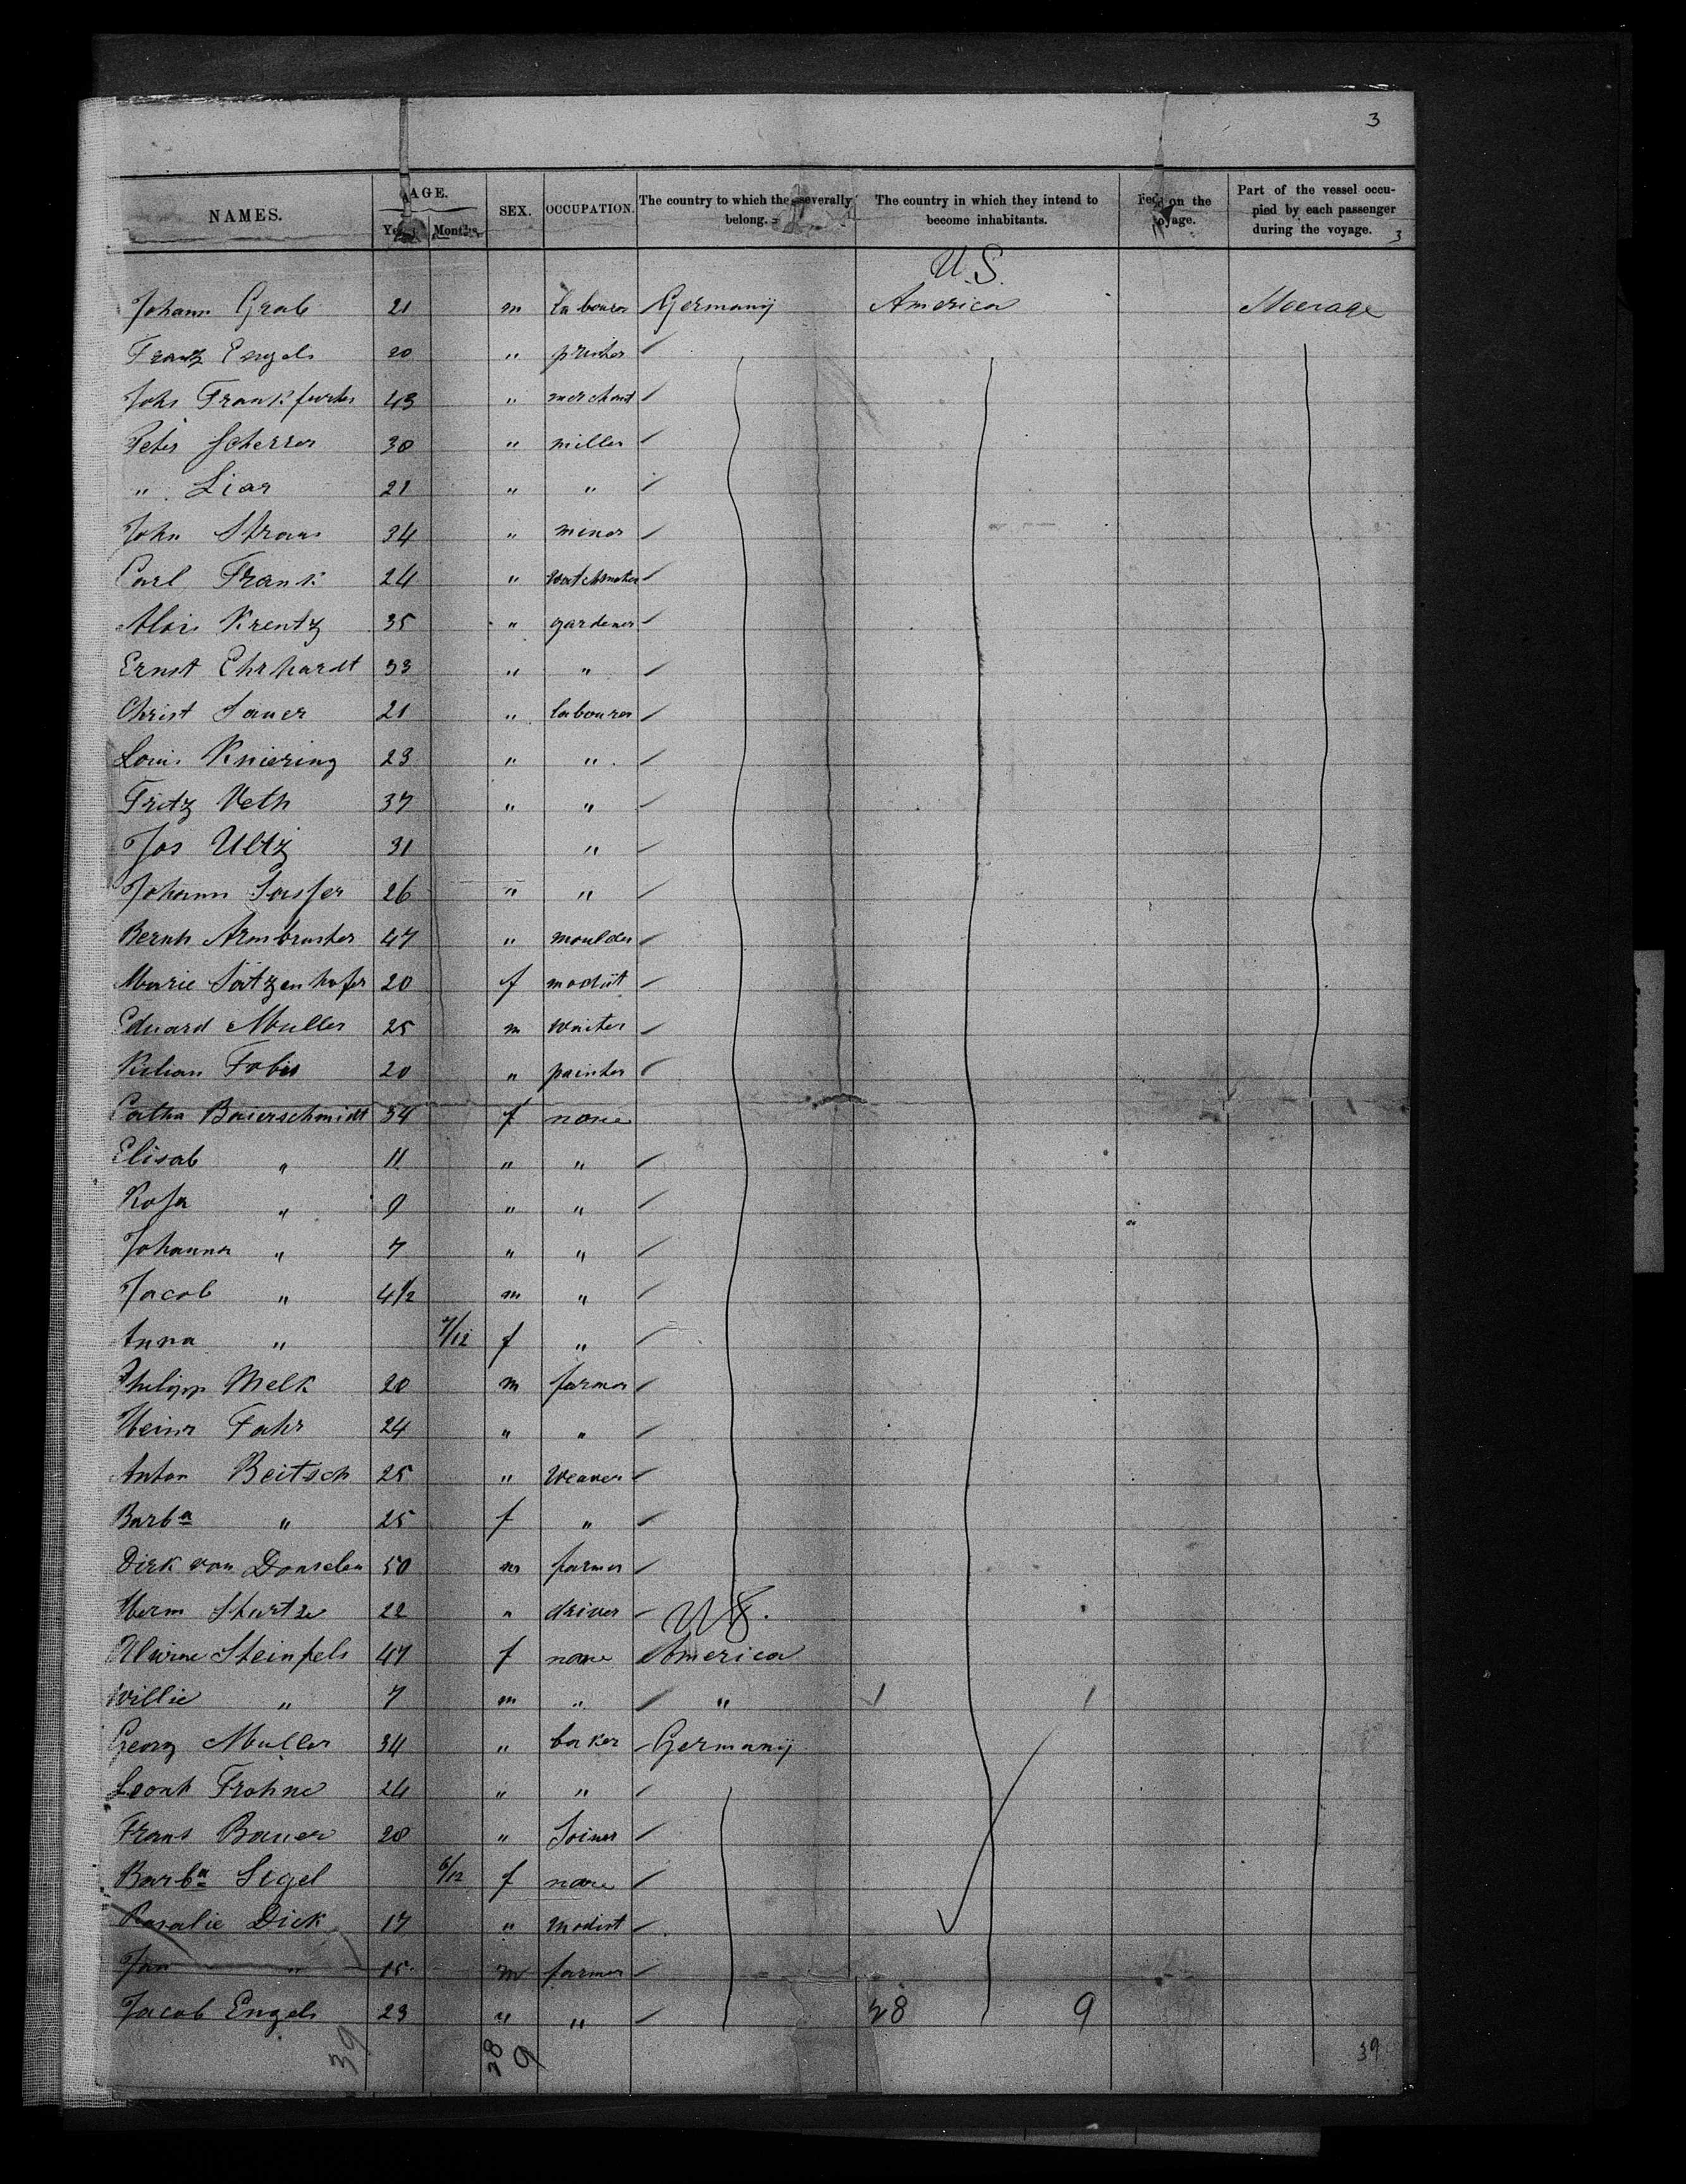 3
NAMES. AGE. SEX. OCCUPATION. The country to which the severally belong. The country in which they intend to become inhabitants. on the Part of the vessel occupied by each passenger during the voyage. 3
Months.
U.S.
Johann Grab 21 m labourer Germany America Steerage
Franz Engels 20 " printer
Johs Frankfurter 43 " merchant
Peter Scherrer 30 " miller
" Liar 21 " "
John Straus 34 " miner
Carl Frank 24 " watchmaker
Alois Krentz 35 " gardener
Ernst Ehrhardt 33 " "
Christ Sauer 21 " labourer
Louis Kniering 23 " "
Fritz Veth 37 " "
Jos Ultz 31 "
Johann 26 " "
Bernh Armbruster 47 " moulder
Marie Sätzenhofer 20 f modist
Eduard Muller 25 m waiter
Kilian 20 " painter
Catha Baierschmidt 34 f none
Elisab " 11 " "
Rosa " 9 " "
Johanna " 7 " "
Jacob " 4 1/2 m "
Anna " 7/12 f "
Philipp Melk 20 m farmer
Heinr Fahr 24 " "
Anton Beitsch 25 " Weaver
Barba " 25 f "
Dirk van Donselen 50 m farmer
Herm 22 " driver US.
Steinfels 47 f none America
Willie " 7 m " "
Georg Muller 34 " baker Germany
Leonh Frohne 24 " "
Frans Bauer 28 " Joiner
Barba Sigel 6/12 f none
Rosalie Dick 17 " modist
Jan " 15 m farmer
Jacob Engels 23 " " 28 9
39 28 9 39